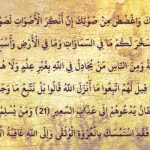 كَ وَاغْضُضْ مِنْ صَوْتِكَ إِنَّ أَنْكَرَ الْأَصْوَاتِ لَصَوْتُ
سَخَّرَ لَكُمْ مَا فِي السَّمَاوَاتِ وَمَا فِي الْأَرْضِ وَأَسْبَ
ةً وَمِنَ النَّاسِ مَنْ يُجَادِلُ فِي اللَّهِ بِغَيْرِ عِلْمٍ وَلَا هُ
قِيلَ لَهُمُ اتَّبِعُوا مَا أَنْزَلَ اللَّهُ قَالُوا بَلْ نَتَّبِعُ مَا وَجَ
انُ يَدْعُوهُمْ إِلَى عَذَابِ السَّعِيرِ (21) وَمَنْ يُسْلِمْ
فَقَدِ اسْتَمْسَكَ بِالْعُرْوَةِ الْوُثْقَى وَإِلَى اللَّهِ عَاقِبَةُ ا